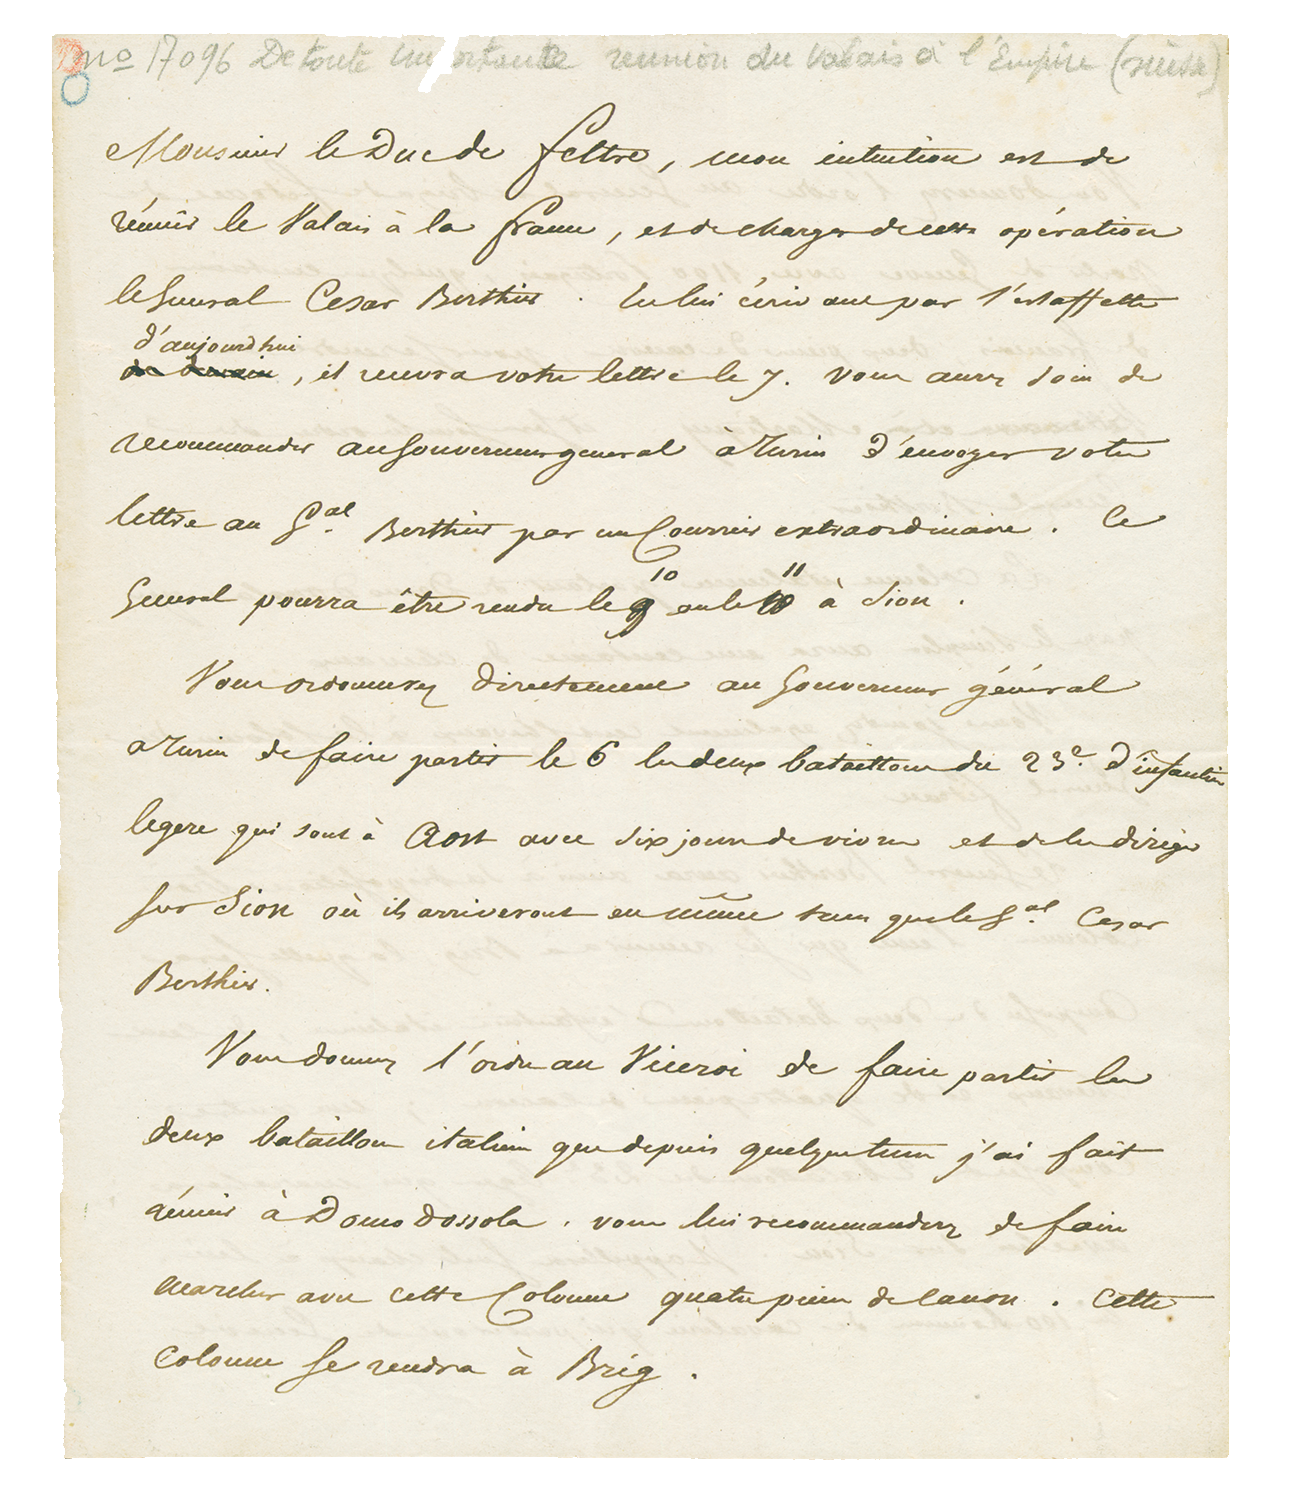 no 17096 De toute importance reunion du Valais à l'Empire (suisse)
Monsieur le Duc de Feltre, mon intention est de
réunir le Valais à la france, et de charger de cette opération
le General Cesar Berthier. Ecrivez par l'estaffette
d'aujourdhui
de demain, il recevra votre lettre le 7. Vous aurez soin de
recommander au Gouverneur general à Turin d'envoyer votre
lettre au Gal. Berthier par un Courrier extraordinaire. Ce
10 11
General pourra être rendu le 9 ou le 10 à Sion.
Vous ordonnerez directement au Gouverneur général
à Turin de faire partir le 6 les deux bataillons du 23e. d'infanterie
legere qui sont à Aost avec six jours de vivres et de les diriger
sur Sion où ils arriveront en même tems que le Gal. Cesar
Berthier.
Vous donnerez l'ordre au Viceroi de faire partir les
deux bataillons italiens que depuis quelque tems j'ai fait
réunir à Domo dossola. vous lui recommanderez de faire
marcher avec cette Colonne quatre pieces de canon. Cette
colonne se rendra à Brig.